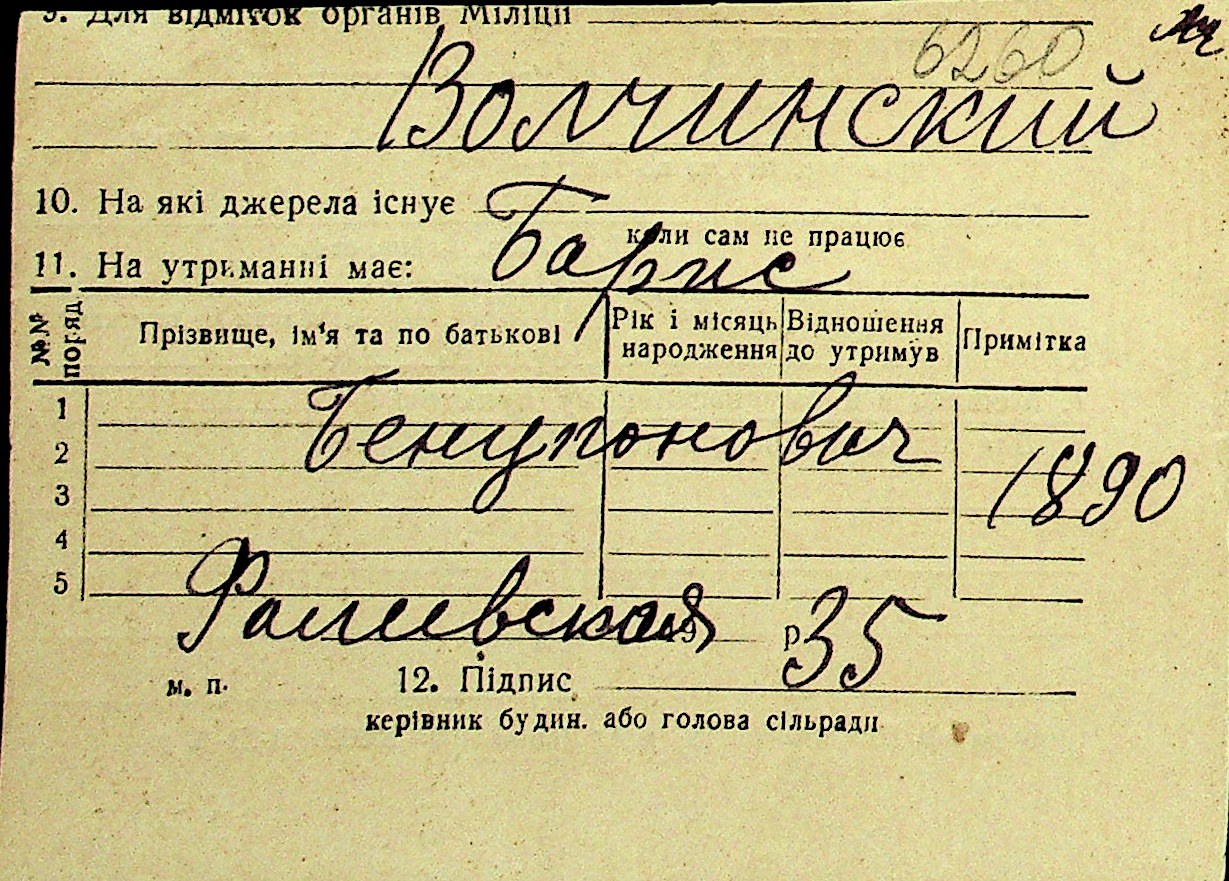 9. Для відміток органів Міліції
6260
Волчинский
10. На які джерела існує
коли сам не працює
Барис
11. На утриманні має:
№№ поряд. Прізвище, ім'я та по батькові Рік і місяць народження Відношення до утримув Примітка
1
2
3
4
5
1890
19 р.
35
м. п. 12. Підпис
керівник будин. або голова сільради